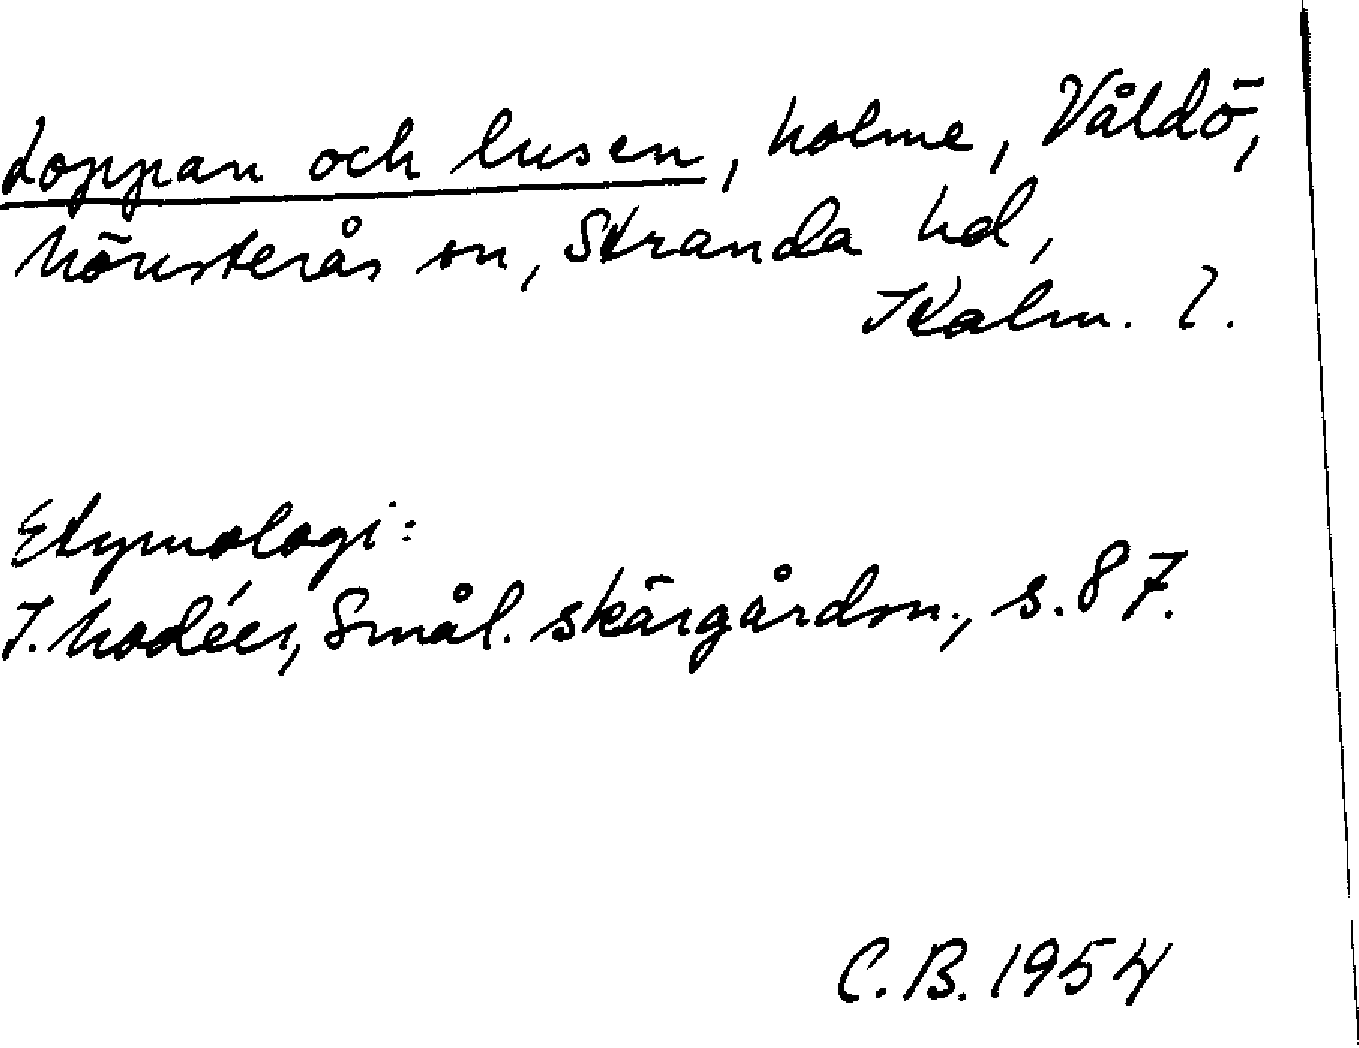 Loppan och lusen, holme, Våldö,
Mönsterås sn, Stranda hd,
Kalm. l.
Etymologi:
I. Modéer, Smål. skärgårdsn., s. 87.
C.B. 1954